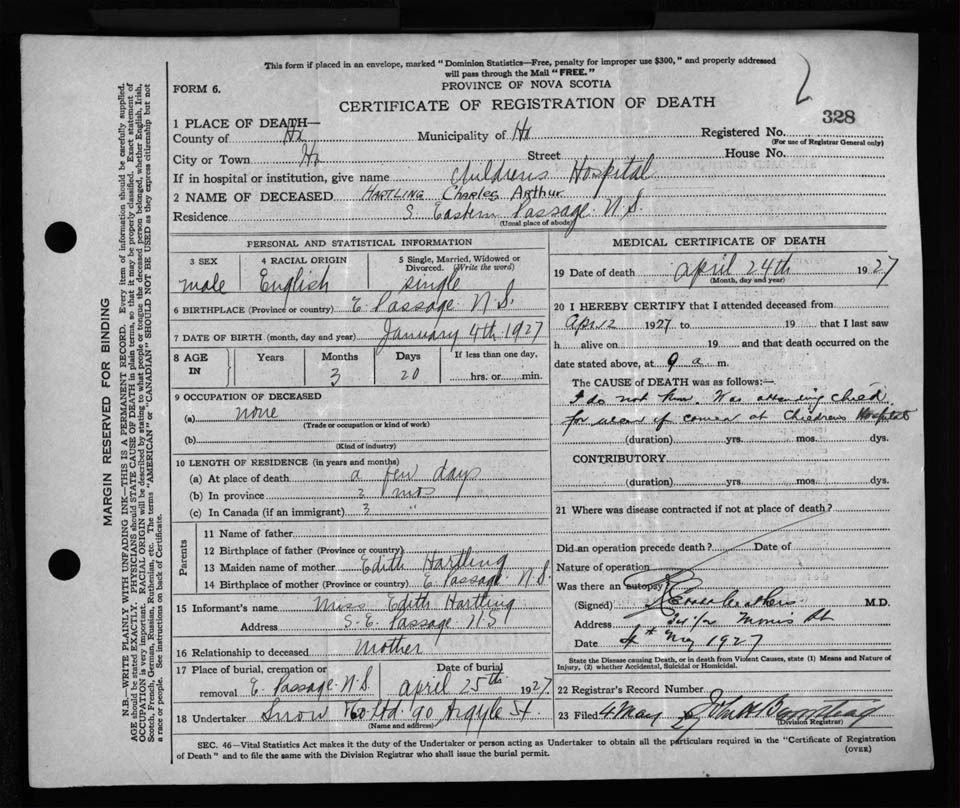 This form if placed in an envelope, marked "Dominion Statistics—Free, penalty for improper use $300," and properly addressed
will pass through the Mail "FREE."
FORM 6.
PROVINCE OF NOVA SCOTIA
2
CERTIFICATE OF REGISTRATION OF DEATH
328
1 PLACE OF DEATH—
County of Hx Municipality of Hx Registered No.
(For use of Registrar General only)
City or Town Hx Street House No.
If in hospital or institution, give name Childrens Hospital
2 NAME OF DECEASED HARTLING Charles Arthur
Residence S Eastern Passage N.S.
(Usual place of abode)
PERSONAL AND STATISTICAL INFORMATION
3 SEX 4 RACIAL ORIGIN 5 Single, Married, Widowed or
Divorced. (Write the word)
male English single
6 BIRTHPLACE (Province or country) E Passage N.S.
7 DATE OF BIRTH (month, day and year) January 4th 1927
8 AGE IN Years Months Days If less than one day,
3 20 hrs. or min.
9 OCCUPATION OF DECEASED
(a) none
(Trade or occupation or kind of work)
(b)
(Kind of industry)
10 LENGTH OF RESIDENCE (in years and months)
(a) At place of death a few days
(b) In province 3 mos
(c) In Canada (if an immigrant) 3 "
Parents
11 Name of father
12 Birthplace of father (Province or country)
13 Maiden name of mother Edith Hartling
14 Birthplace of mother (Province or country) E Passage N.S.
15 Informant's name Miss Edith Hartling
Address S. E. Passage N.S
16 Relationship to deceased Mother
17 Place of burial, cremation or Date of burial
removal E. Passage N.S. april 25th 1927
18 Undertaker Snow & Co Ltd 90 Argyle St.
(Name and address)
MEDICAL CERTIFICATE OF DEATH
19 Date of death april 24th 1927
(Month, day and year)
20 I HEREBY CERTIFY that I attended deceased from
Apr. 12 1927 to 19 that I last saw
h alive on 19 and that death occurred on the
date stated above, at 9 a m.
The CAUSE of DEATH was as follows:—
I do not know. Was attending child
for at Childrens Hospital
(duration) yrs. mos. dys.
CONTRIBUTORY.
(duration) yrs. mos. dys.
21 Where was disease contracted if not at place of death?
Did an operation precede death? Date of
Nature of operation
Was there an autopsy
(Signed) M.D.
Address Morris St
Date 4th May 1927
State the Disease causing Death, or in death from Violent Causes, state (1) Means and Nature of
Injury, (2) whether Accidental, Suicidal or Homicidal.
22 Registrar's Record Number
23 Filed 4 May 27 John A
(Division Registrar)
SEC. 46—Vital Statistics Act makes it the duty of the Undertaker or person acting as Undertaker to obtain all the particulars required in the "Certificate of Registration
of Death" and to file the same with the Division Registrar who shall issue the burial permit.
(OVER)
MARGIN RESERVED FOR BINDING
N.B.—WRITE PLAINLY WITH UNFADING INK—THIS IS A PERMANENT RECORD. Every item of information should be carefully supplied.
AGE should be stated EXACTLY. PHYSICIANS should STATE CAUSE OF DEATH in plain terms, so that it may be properly classified. Exact statement of
OCCUPATION is very important. RACIAL ORIGIN will be described by stating to what people or tongue the deceased person belonged, whether English, Irish,
Scotch, French, German, Russian, Ruthenian, etc. The terms "AMERICAN" or "CANADIAN" SHOULD NOT BE USED as they express citizenship but not
a race or people. See instructions on back of Certificate.